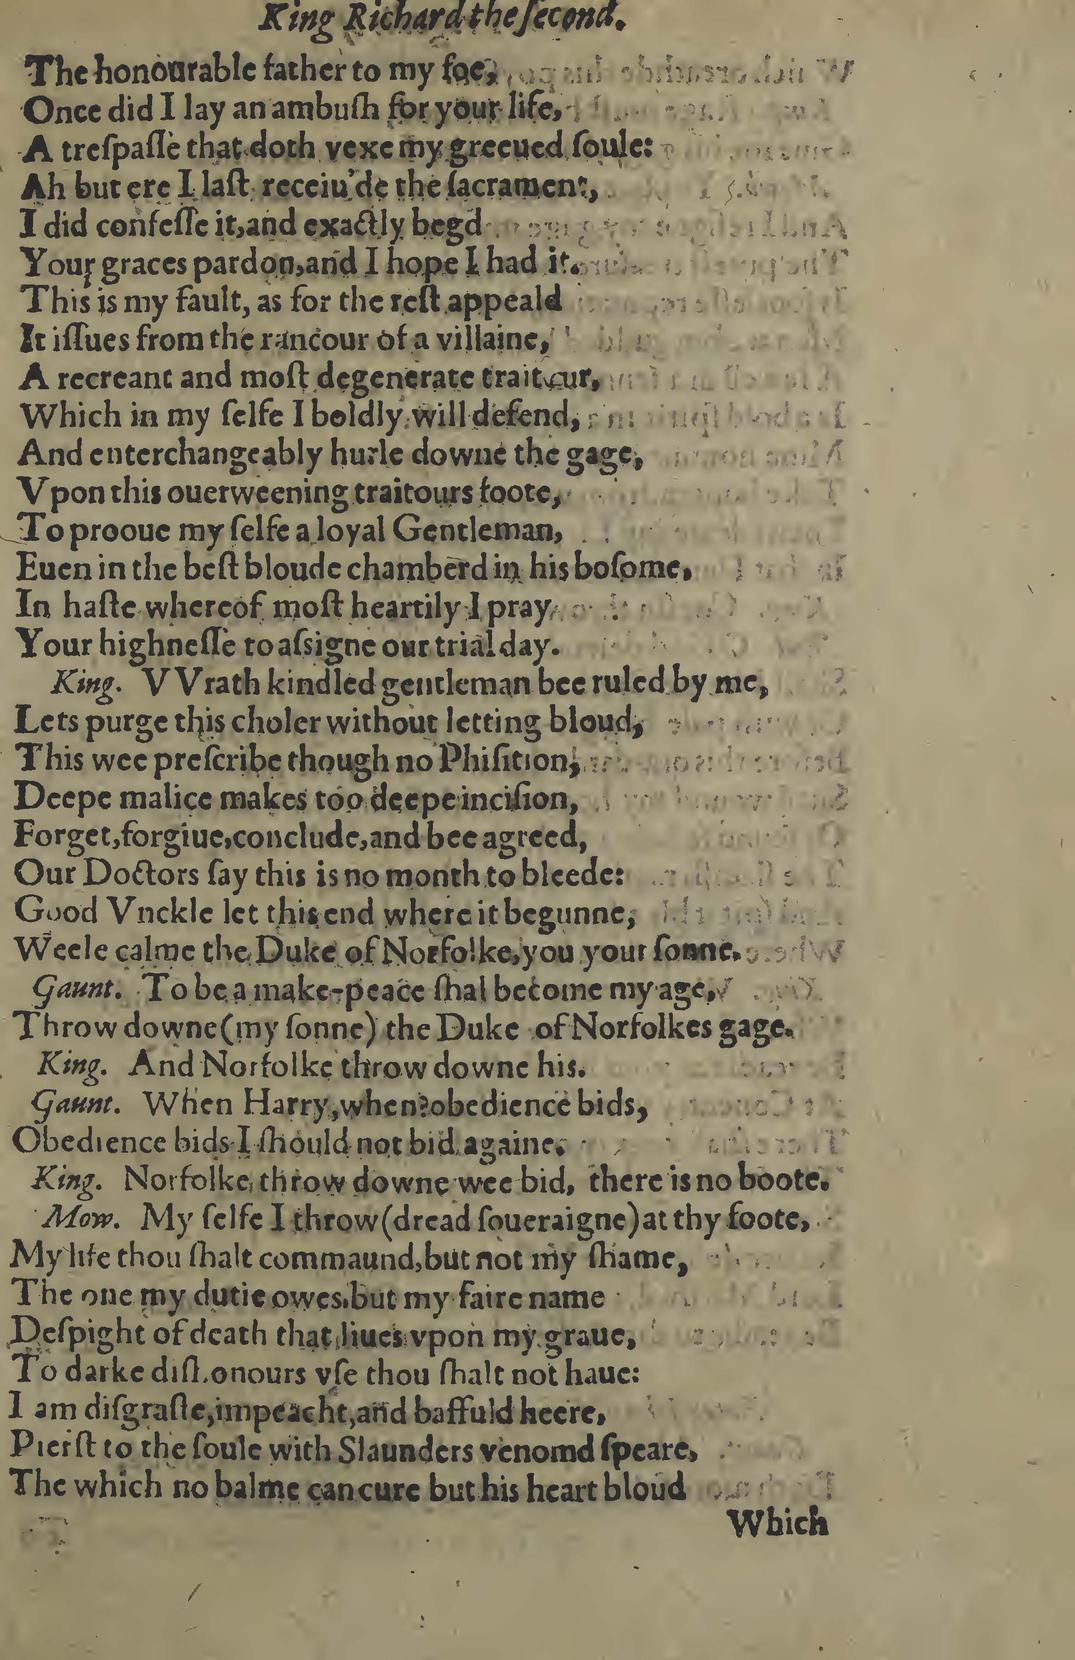 King Richard the ſecond.
The honourable father to my foe,
Once did I lay an ambuſh for your life,
A treſpaſſe that doth vexe my greeued ſoule:
Ah but ere I laſt receiu'de the ſacrament,
I did confeſſe it,and exactly begd
Your graces pardon,and I hope I had it.
This is my fault, as for the reſt appeald
It iſſues from the rancour of a villaine,
A recreant and moſt degenerate traitour,
Which in my ſelfe I boldly will defend,
And enterchangeably hurle downe the gage,
Vpon this ouerweening traitours foote,
To prooue my ſelfe a loyal Gentleman,
Euen in the beſt bloude chamberd in his boſome,
In haſte whereof moſt heartily I pray
Your highneſſe to aſsigne our trial day.
King. VVrath kindled gentleman bee ruled by me,
Lets purge this choler without letting bloud,
This wee preſcribe though no Phiſition,
Deepe malice makes too deepe inciſion,
Forget,forgiue,conclude,and bee agreed,
Our Doctors ſay this is no month to bleede:
Good Vnckle let this end where it begunne,
Weele calme the Duke of Norfolke,you your ſonne.
Gaunt. To be a make-peace ſhal become my age,
Throw downe(my ſonne) the Duke of Norfolkes gage.
King. And Norfolke throw downe his.
Gaunt. When Harry,when?obedience bids,
Obedience bids I ſhould not bid againe.
King. Norfolke throw downe wee bid, there is no boote.
Mow. My ſelfe I throw(dread ſoueraigne)at thy foote,
My life thou ſhalt commaund,but not my ſhame,
The one my dutie owes,but my faire name
Deſpight of death that liues vpon my graue,
To darke diſhonours vſe thou ſhalt not haue:
I am diſgraſte,impeacht,and baffuld heere,
Pierſt to the ſoule with Slaunders venomd ſpeare,
The which no balme can cure but his heart bloud
Which